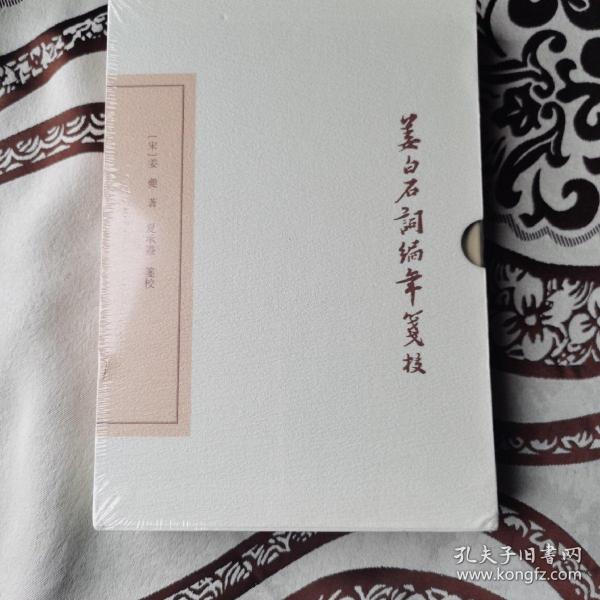 姜白石詞編年箋校
[宋]姜夔 著
夏承燾 箋校
孔夫子旧书网
www.kongfz.com